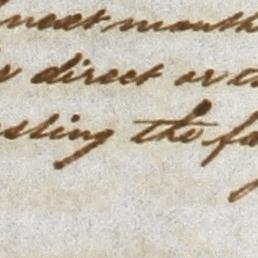 next month
direct or th
sting the fa